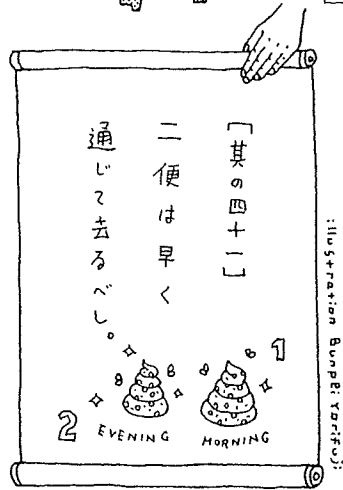 ［其の四十一］
二便は早く
通じて去るべし。
1
MORNING
2
EVENING
illustration Bunpei Yorifuji